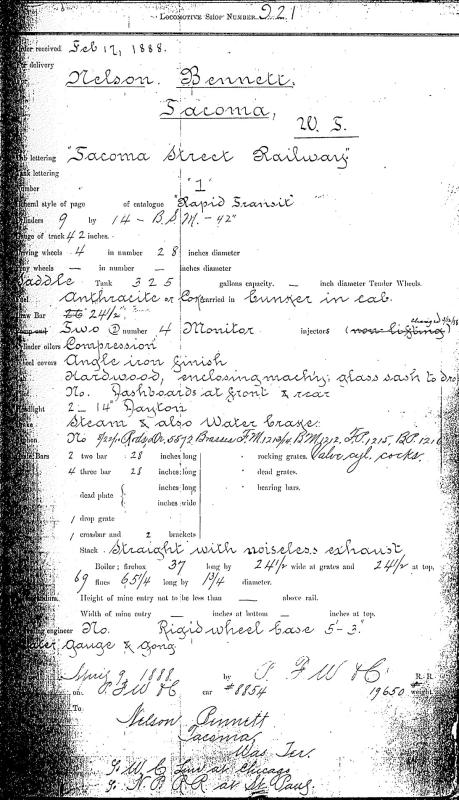 LOCOMOTIVE SHOP NUMBER 921
order received Feb 17, 1888.
For delivery
Nelson Bennett,
Tacoma,
W. T.
lettering "Tacoma Street Railway"
lettering
Number "1"
General style of page of catalogue "Rapid Transit"
Cylinders 9 by 14 - B. S. M. - 42"
Gauge of track 42 inches.
Driving wheels 4 in number 28 inches diameter
wheels — in number — inches diameter
Saddle Tank 325 gallons capacity. — inch diameter Tender Wheels.
Fuel Anthracite or Coke carried in bunker in cab.
Draw Bar 24 1/2"
Two ② number 4 Monitor injectors (non-lifting) changed
Cylinder oilers Compression
Wheel covers Angle iron finish
Cab Hardwood, enclosing machy, glass sash to drop
No. Dashboards at front & rear
Headlight 2 - 14" Dayton
Brake Steam & also Water brake.
No Rods 5672 Brasses F.M. 1213/4, B.M. 1212, F.P. 1215, B.P. 1216
Grate Bars 2 two bar 28 inches long " rocking grates. Valve cyl. cocks.
4 three bar 28 inches long " dead grates.
dead plate { inches long " bearing bars.
inches wide
1 drop grate
1 crossbar and 2 brackets
Stack Straight with noiseless exhaust
Boiler; firebox 37 long by 24 1/2 wide at grates and 24 1/2 at top,
69 flues 65 1/4 long by 1 3/4 diameter.
Height of mine entry not to be less than — above rail.
Width of mine entry — inches at bottom — inches at top.
engineer No. Rigid wheel base 5'-3"
Water Gauge & gong
April 9, 1888 by P. F W & C. R. R.
on P. F W & C. car #8854 19650 weight
To
Nelson Bennett
Tacoma,
Was. Ter.
W. C. Line at Chicago
N. P. R R at St Paul